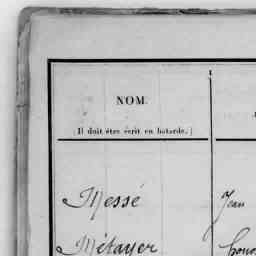 NOM.
(Il doit être écrit en batarde.)
Messé Jean
Métayer